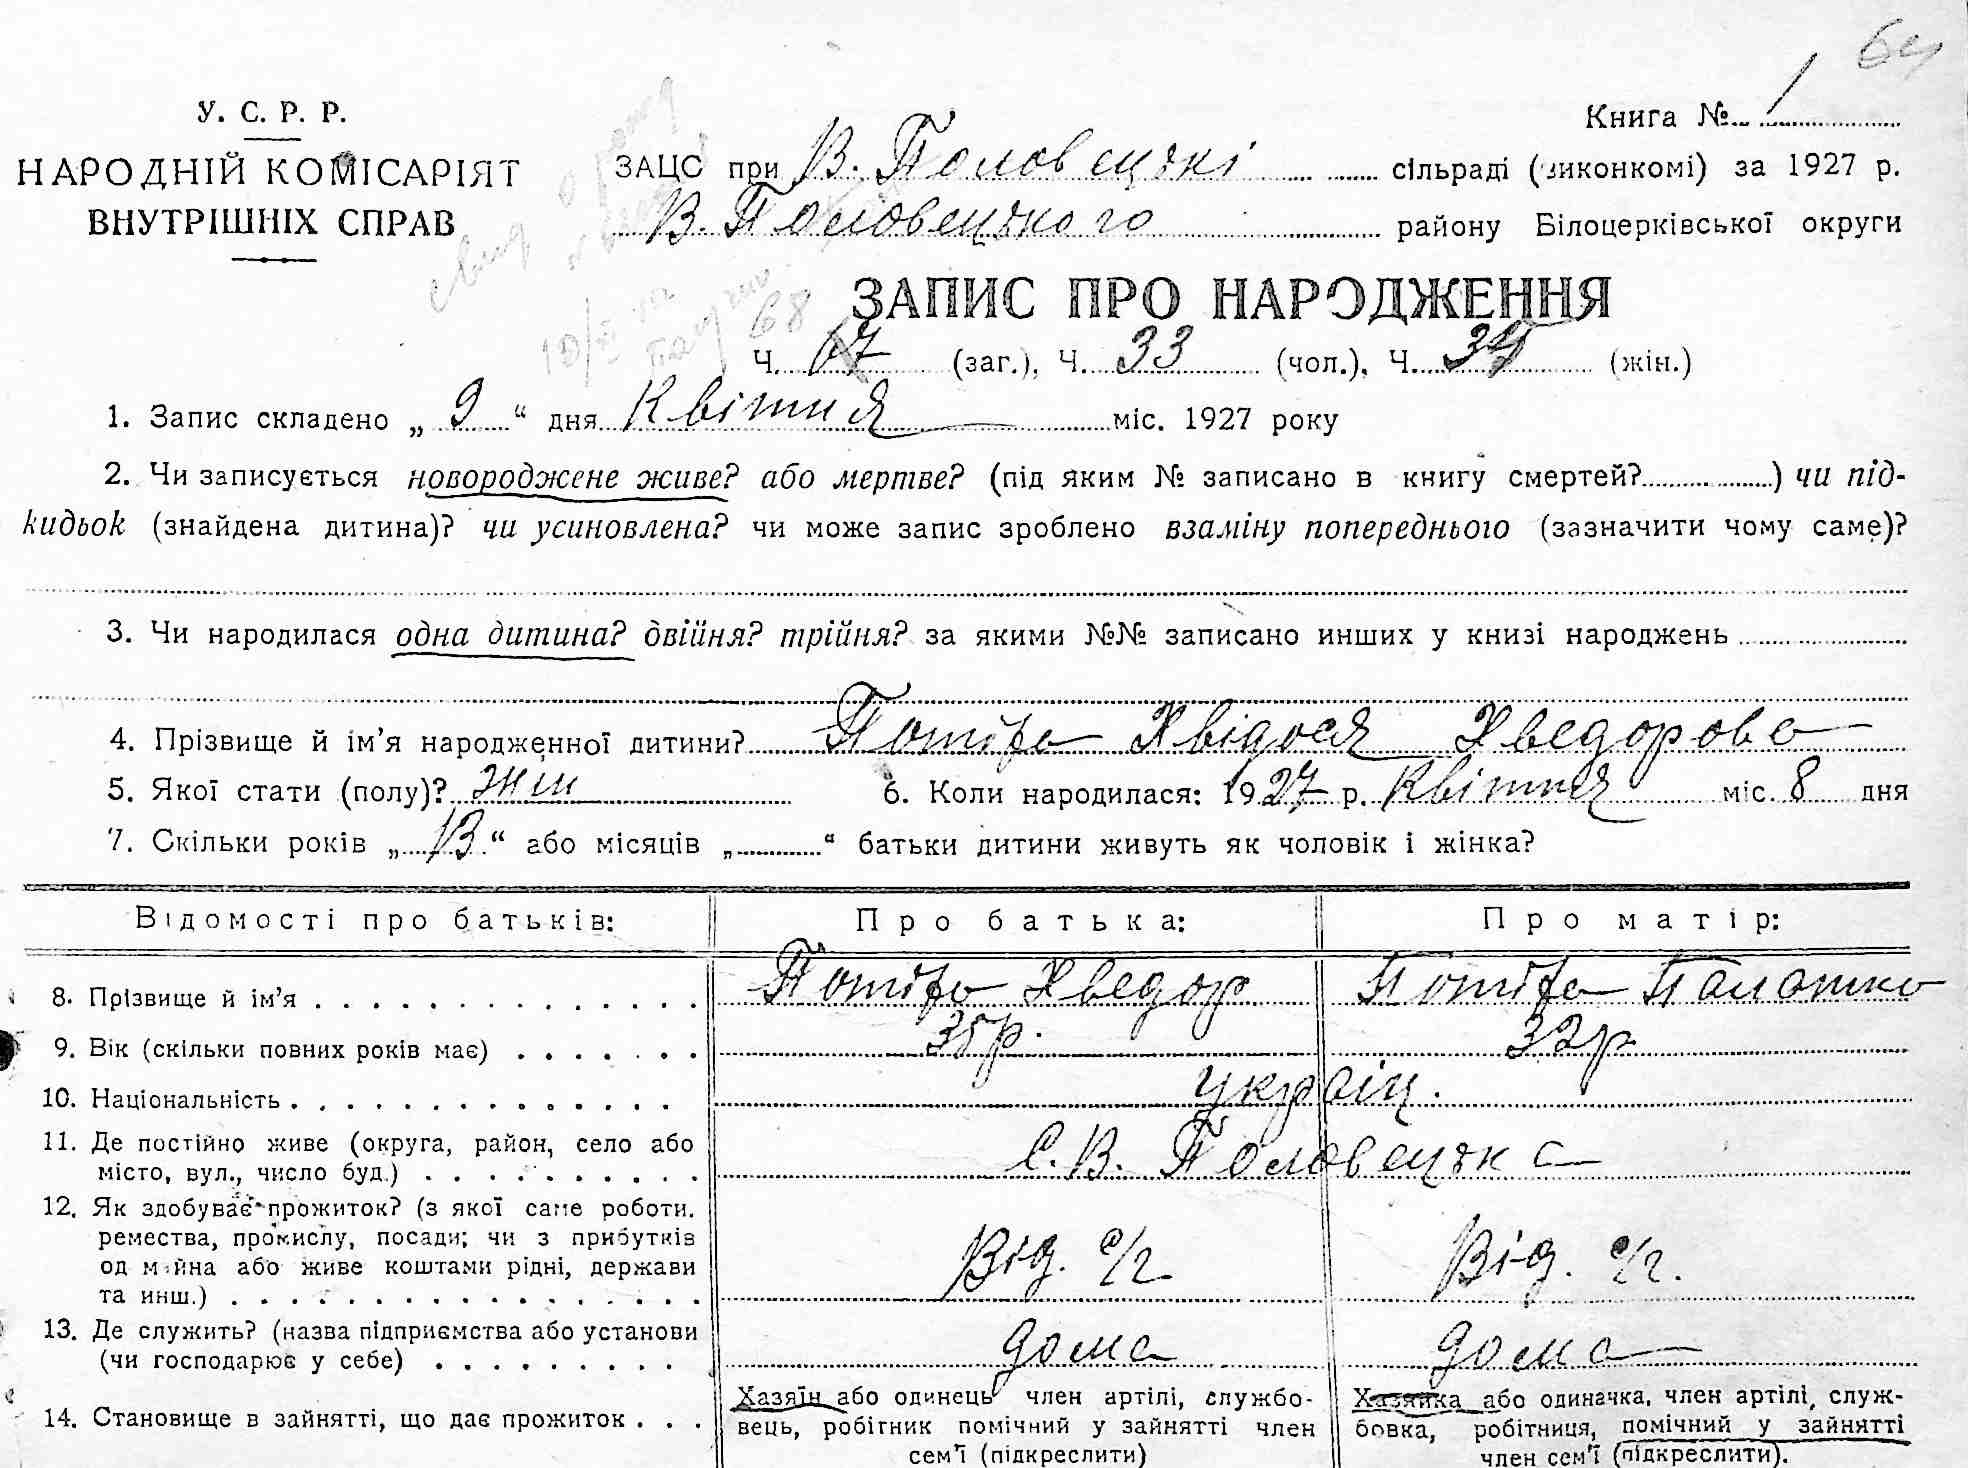 64
У. С. Р. Р.
НАРОДНІЙ КОМІСАРІЯТ
ВНУТРІШНІХ СПРАВ
Книга № 1
ЗАЦС при В. Половецькі сільраді (виконкомі) за 1927 р.
В. Половецького району Білоцерківської округи
ЗАПИС ПРО НАРОДЖЕННЯ
68
Ч. 67 (заг.), Ч. 33 (чол.), Ч. 34 (жін.)
1. Запис складено „ 9 “ дня Квітня міс. 1927 року
2. Чи записується новороджене живе? або мертве? (під яким № записано в книгу смертей?) чи під-
кидьок (знайдена дитина)? чи усиновлена? чи може запис зроблено взаміну попереднього (зазначити чому саме)?
3. Чи народилася одна дитина? двійня? трійня? за якими №№ записано инших у книзі народжень
4. Прізвище й ім'я народженної дитини? Хвідося Хведорова
5. Якої стати (полу)? жін 6. Коли народилася: 1927 р. Квітня міс. 8 дня
7. Скільки років „ 13 “ або місяців „ “ батьки дитини живуть як чоловік і жінка?
Відомості про батьків: Про батька: Про матір:
8. Прізвище й ім'я Хведор Палажка
9. Вік (скільки повних років має) 35 р. 32 р.
10. Національність україн.
11. Де постійно живе (округа, район, село або
місто, вул., число буд.) С. В. Половецьке
12. Як здобуває прожиток? (з якої саме роботи.
ремества, промислу, посади; чи з прибутків
од майна або живе коштами рідні, держави
та инш.) Від. с/г. Від. с/г.
13. Де служить? (назва підприємства або установи
(чи господарює у себе) дома дома
14. Становище в зайнятті, що дає прожиток
Хазяїн або одинець член артілі, службо-
вець, робітник помічний у зайнятті член
сем'ї (підкреслити)
Хазяйка або одиначка, член артілі, служ-
бовка, робітниця, помічний у зайнятті
член сем'ї (підкреслити).